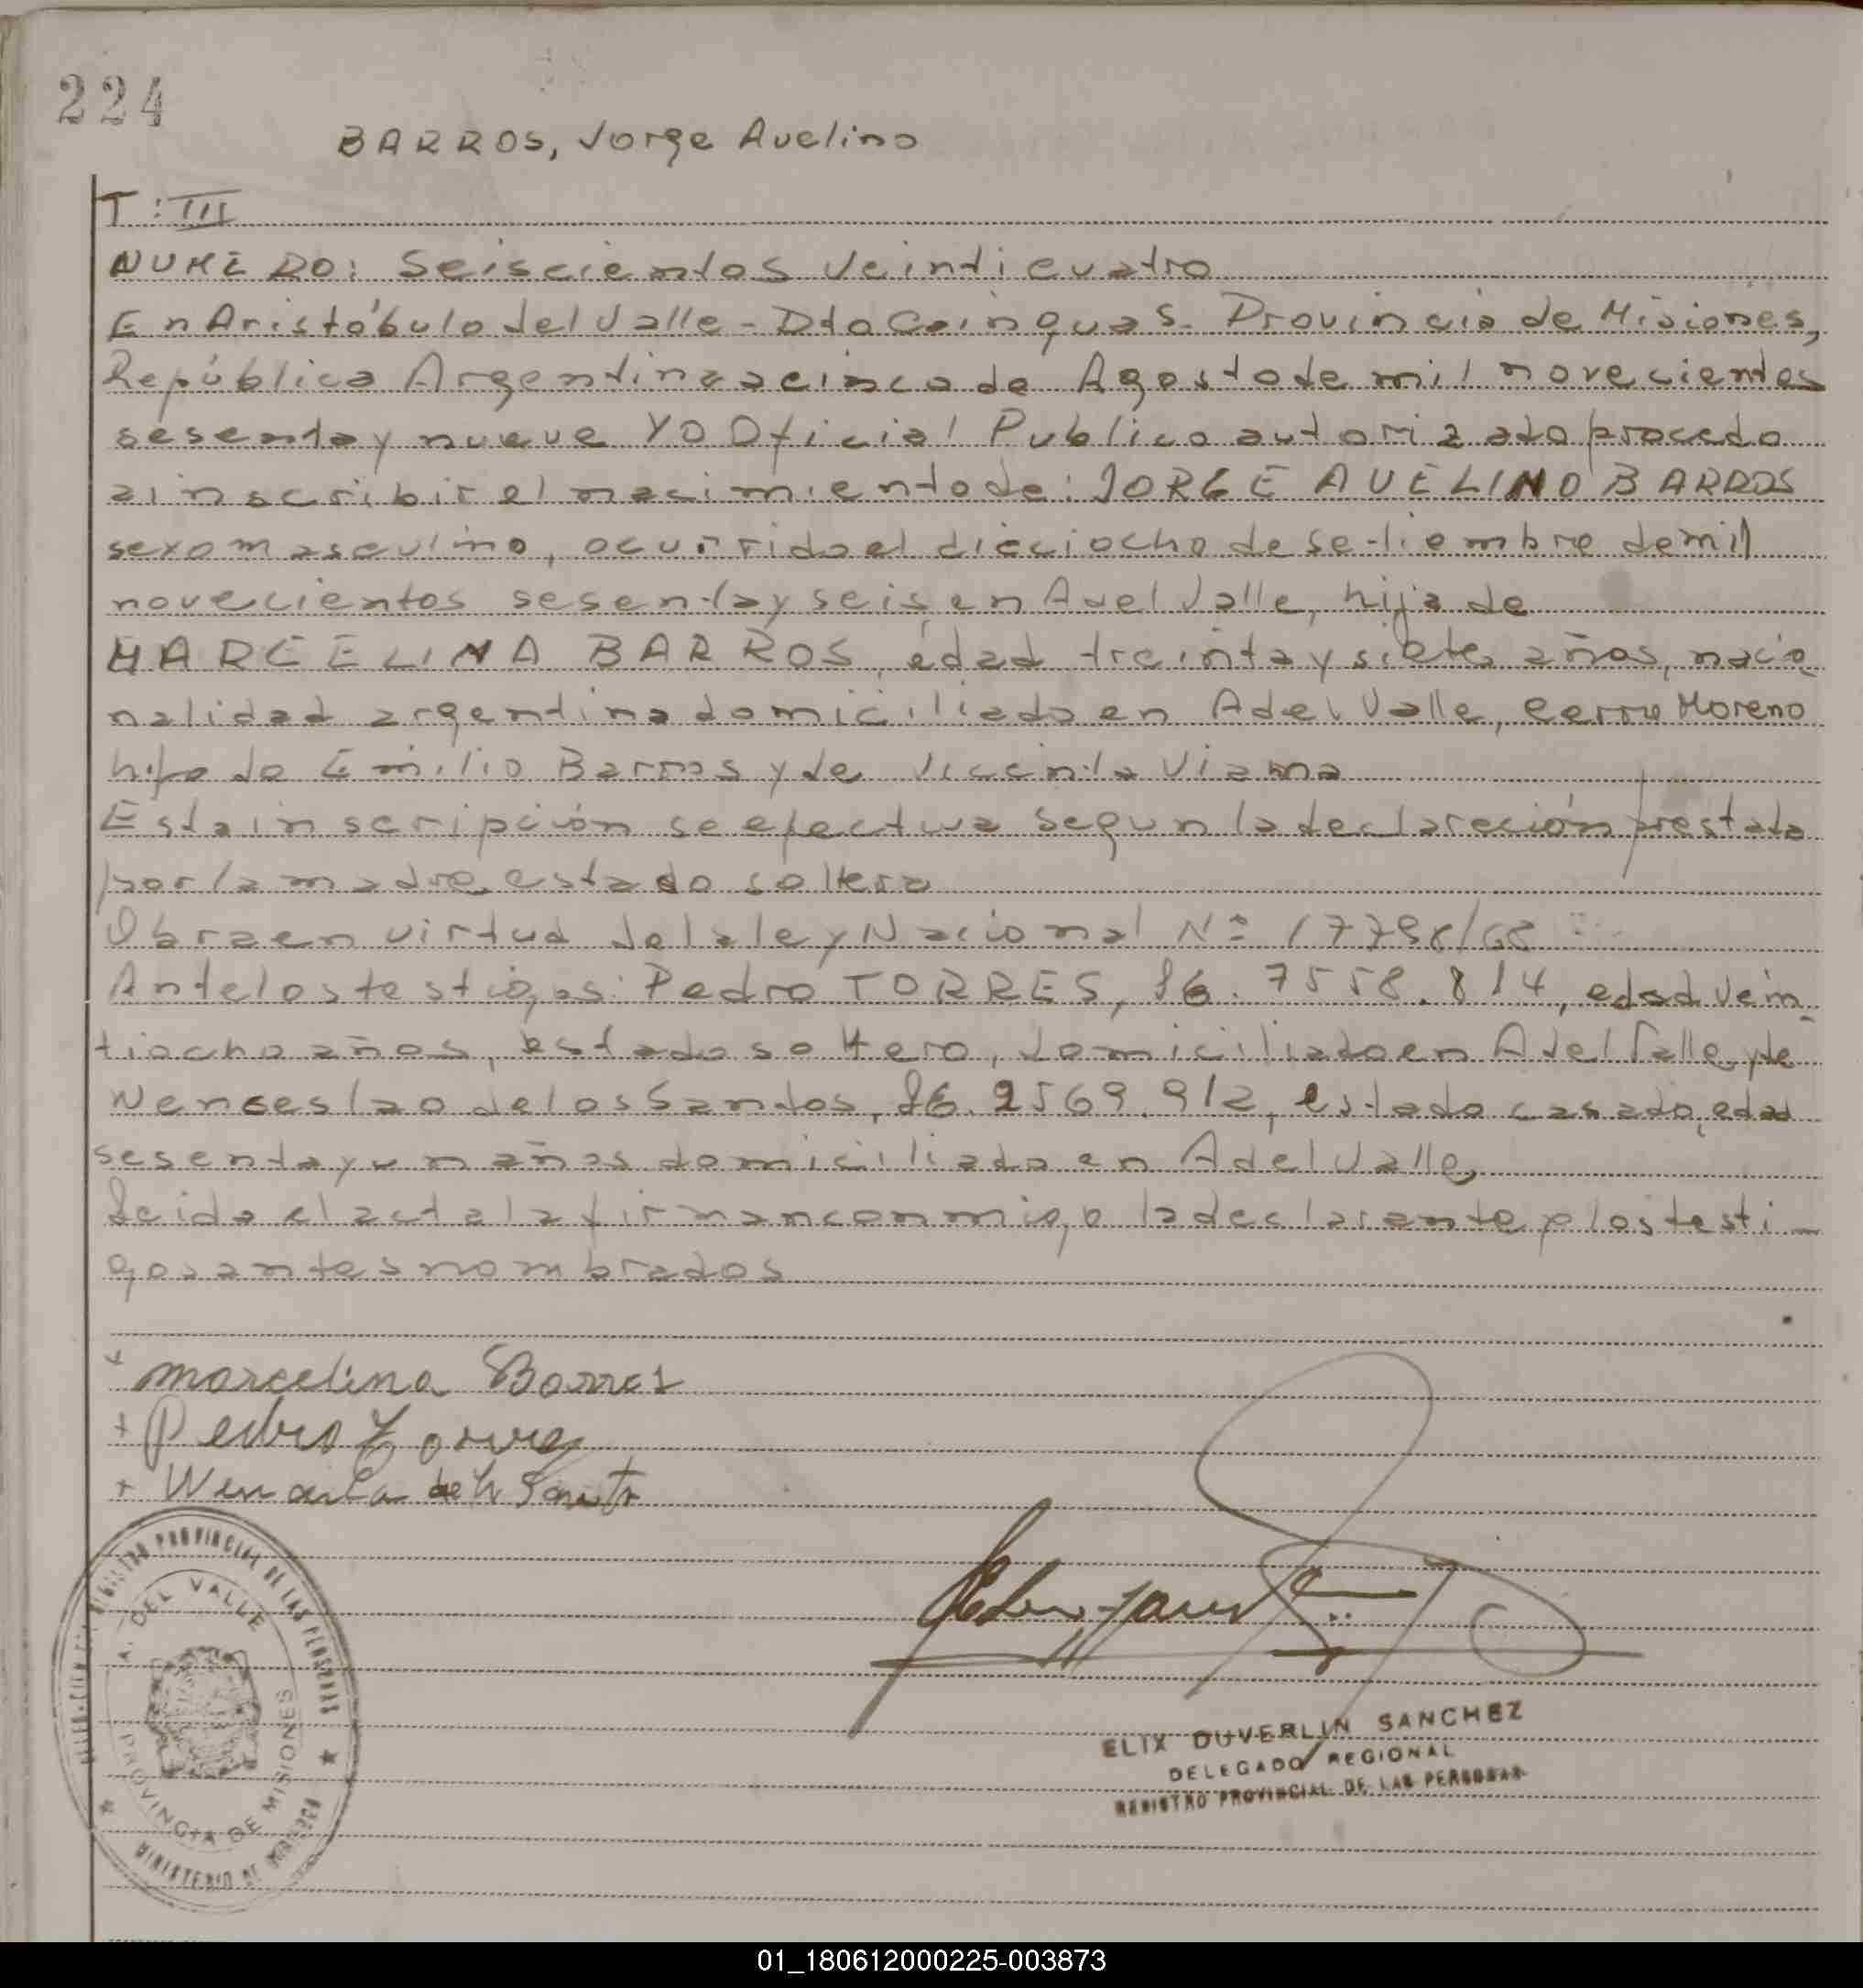 224
BARROS, Jorge Avelino
T: III
NUMERO: Seiscientos Veinticuatro
En Aristóbulo del Valle - Dto Cainguas - Provincia de Misiones,
República Argentina a cinco de Agosto de mil novecientos
sesenta y nueve YO Oficial Publico autorizado procedo
a inscribir el nacimiento de: JORGE AVELINO BARROS
sexo masculino, ocurrido el dieciocho de setiembre de mil
novecientos sesenta y seis, en A del Valle, hijo de
MARCELINA BARROS, edad treinta y siete años, nacio
nalidad argentina domiciliada en A del Valle, Cerro Moreno
hija de Emilio Barros y de Vicenta Viana
Esta inscripción se efectua segun la declareción prestada
por la madre, estado soltera
Obra en virtud de la ley Nacional Nº
Ante los testigos: Pedro TORRES, 7558.814, edad vein
tiocho años, estado soltero, domiciliado en A del Valle y de
Wenceslao de los Santos, 2569.912, estado casado, edad
sesenta y un años domiciliado en A del Valle,
Leida el acta la firman conmigo la declarante y los testi-
gos antes nombrados
+ Marcelina Barros
+ Pedro Torres
+
REGISTRO PROVINCIAL DE LAS PERSONAS
A. DEL VALLE
PROVINCIA DE MISIONES
MINISTERIO DE
ELIX DUVERLIN SANCHEZ
DELEGADO REGIONAL
REGISTRO PROVINCIAL DE LAS PERSONAS
01_180612000225-003873